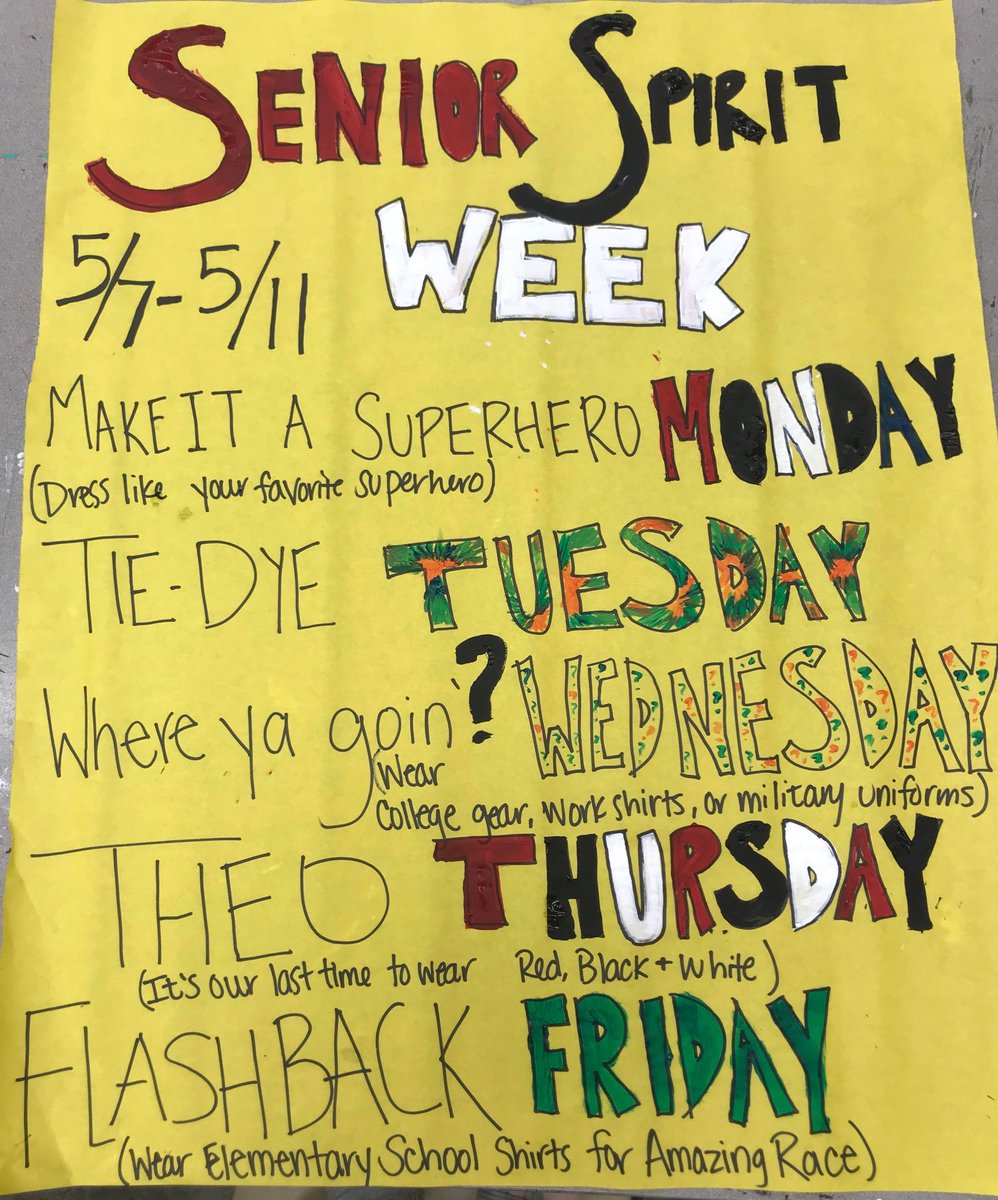 SENIOR SPIRIT
WEEK
5/7-5/11
MAKE IT A SUPERHERO MONDAY
(Dress like your favorite superhero)
TIE-DYE TUESDAY
Where ya goin'? WEDNESDAY
(Wear
College gear, work shirts, or military uniforms)
THEO THURSDAY
(It's our last time to wear Red, Black + White)
FLASHBACK FRIDAY
(Wear Elementary School Shirts for Amazing Race)